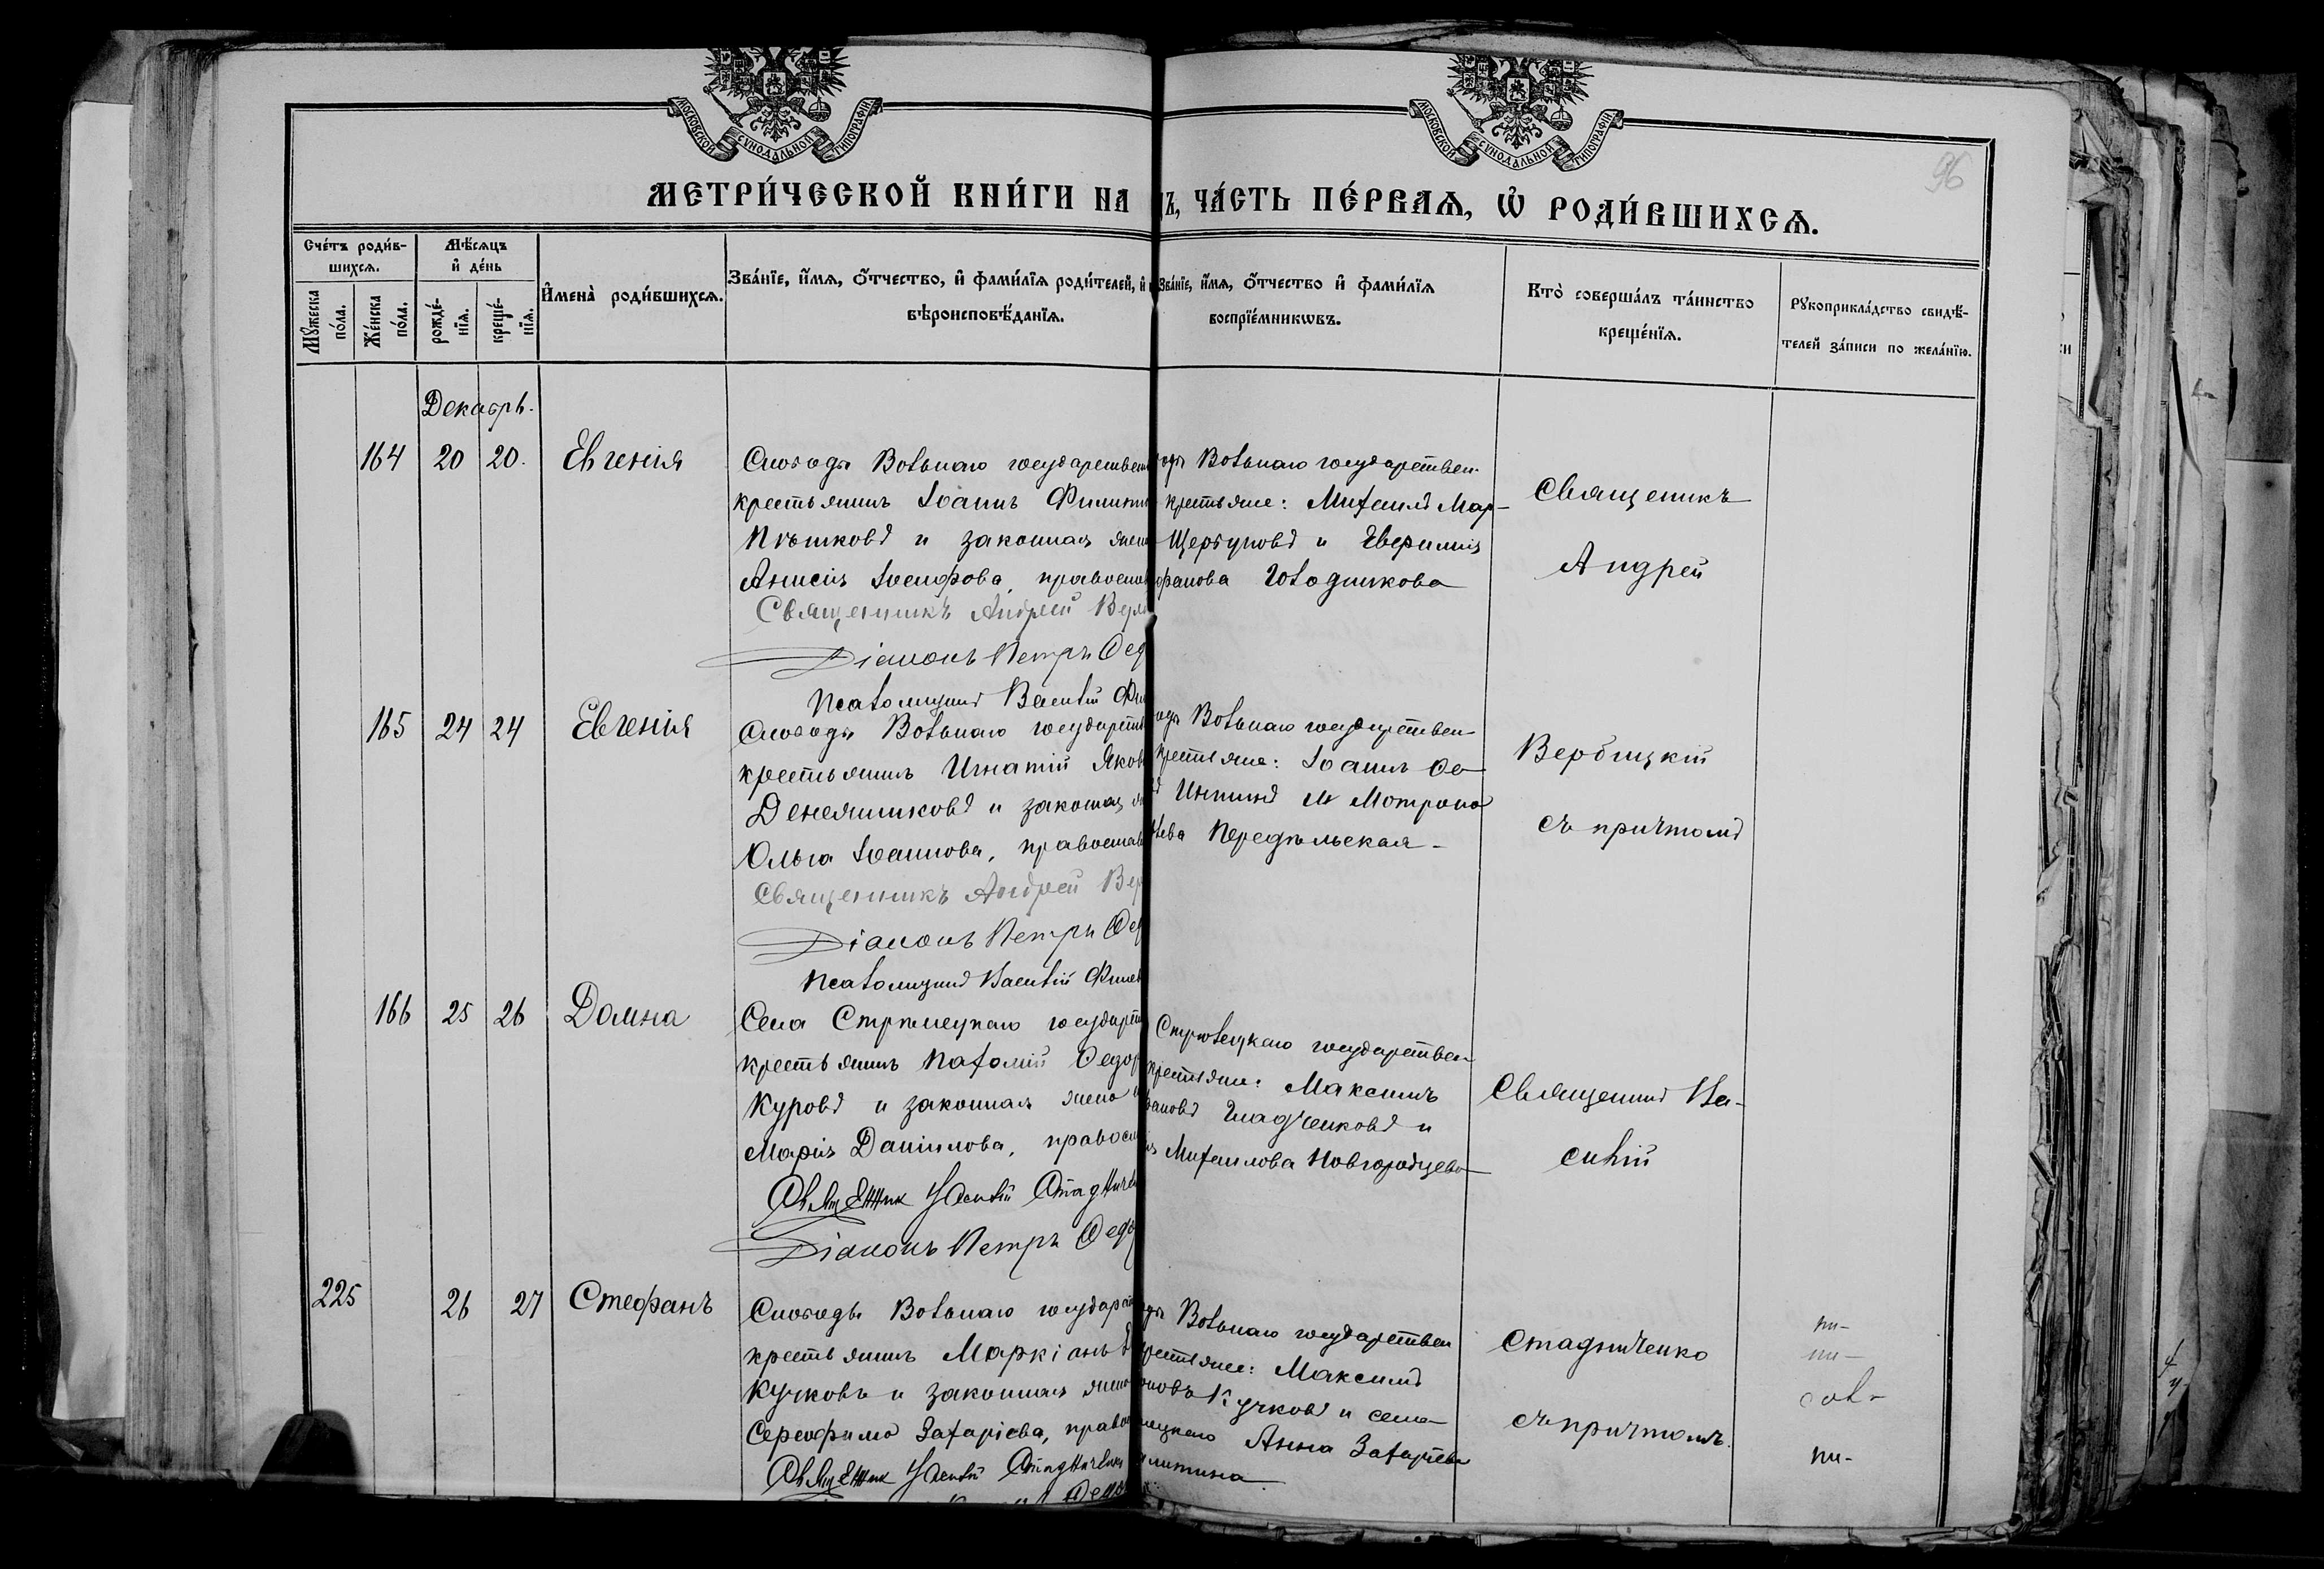 МОСКОВСКОЙ СУНОДАЛЬНОЙ ТИПОГРАФІИ
МОСКОВСКОЙ СУНОДАЛЬНОЙ ТИПОГРАФІИ
96
МЕТРИ́ЧЕСКОЙ КНИ́ГИ НА
Ъ, ЧА́СТЬ ПЕ́РВАЯ, Ѡ҆ РОДИ́ВШИХСЯ.
Сче́тъ роди́в-
шихся.
Мѣ́сяцъ
и҆ де́нь
Мꙋ́жеска
по́ла.
Же́нска
по́ла.
рожде́-
нїя.
креще́-
нїя.
И҆мена̀ роди́вшихся.
Зва́нїе, и҆́мя, ѻ҆́тчество, и҆ фами́лїя роди́телей, и҆
вѣроисповѣ́данїя.
Зва́нїе, и҆́мя, ѻ҆́тчество и҆ фами́лїя
воспрїе́мникѡвъ.
Кто̀ соверша́лъ та́инство
креще́нїя.
Рꙋкоприкла́дство свидѣ́-
телей за́писи по жела́нїю.
Декабрь.
164 20 20. Евгенія
Слободы Вольнаго государствен
крестьянинъ Іоаннъ Филип
Пѣшковъ и законная жен
Анисія Іосифова, правосл
Священникъ Андрей Вер
Діаконъ Петръ Ѳед
Псаломщикъ Василій Фи
оды Вольнаго государствен-
крестьяне: Михаилъ Мар-
Щербуновъ и Евфимія
фанова
Священикъ
Андрей
165 24 24 Евгенія
Слободы Вольнаго государств
крестьянинъ Игнатій Яков
Денежниковъ и законная ж
Ольга Іоаннова, православ
Священникъ Андрей Вер
Діаконъ Петръ Ѳед
Псаломщикъ Василій Филев
оды Вольнаго государствен-
крестьяне: Іоаннъ Ѳе-
и Мотрона
Передѣльская
Вербицкій
съ причтомъ
166 25 26 Домна
Села Стрѣлецкаго государст
крестьянинъ Пахомій Ѳедор
Куровъ и законная жена
Марія Даніилова, правосл
Священник Василій Стадниче
Діаконъ Петръ Ѳедо
Стрѣлецкаго государствен-
крестьяне: Максимъ
Гладченковъ и
Михаилова Новгородцева
Священикъ Ва-
силій
225 26 27 Стефанъ
Слободы Вольнаго государст
крестьянинъ Маркіанъ
Кучковъ и законная жена
Серафима Захаріева, право
Священник Василій Стадниченко
ды Вольнаго государствен
крестьяне: Максимъ
оновъ Кучковъ и села
лецкаго Анна Захаріева
Стадниченко
съ причтомъ.